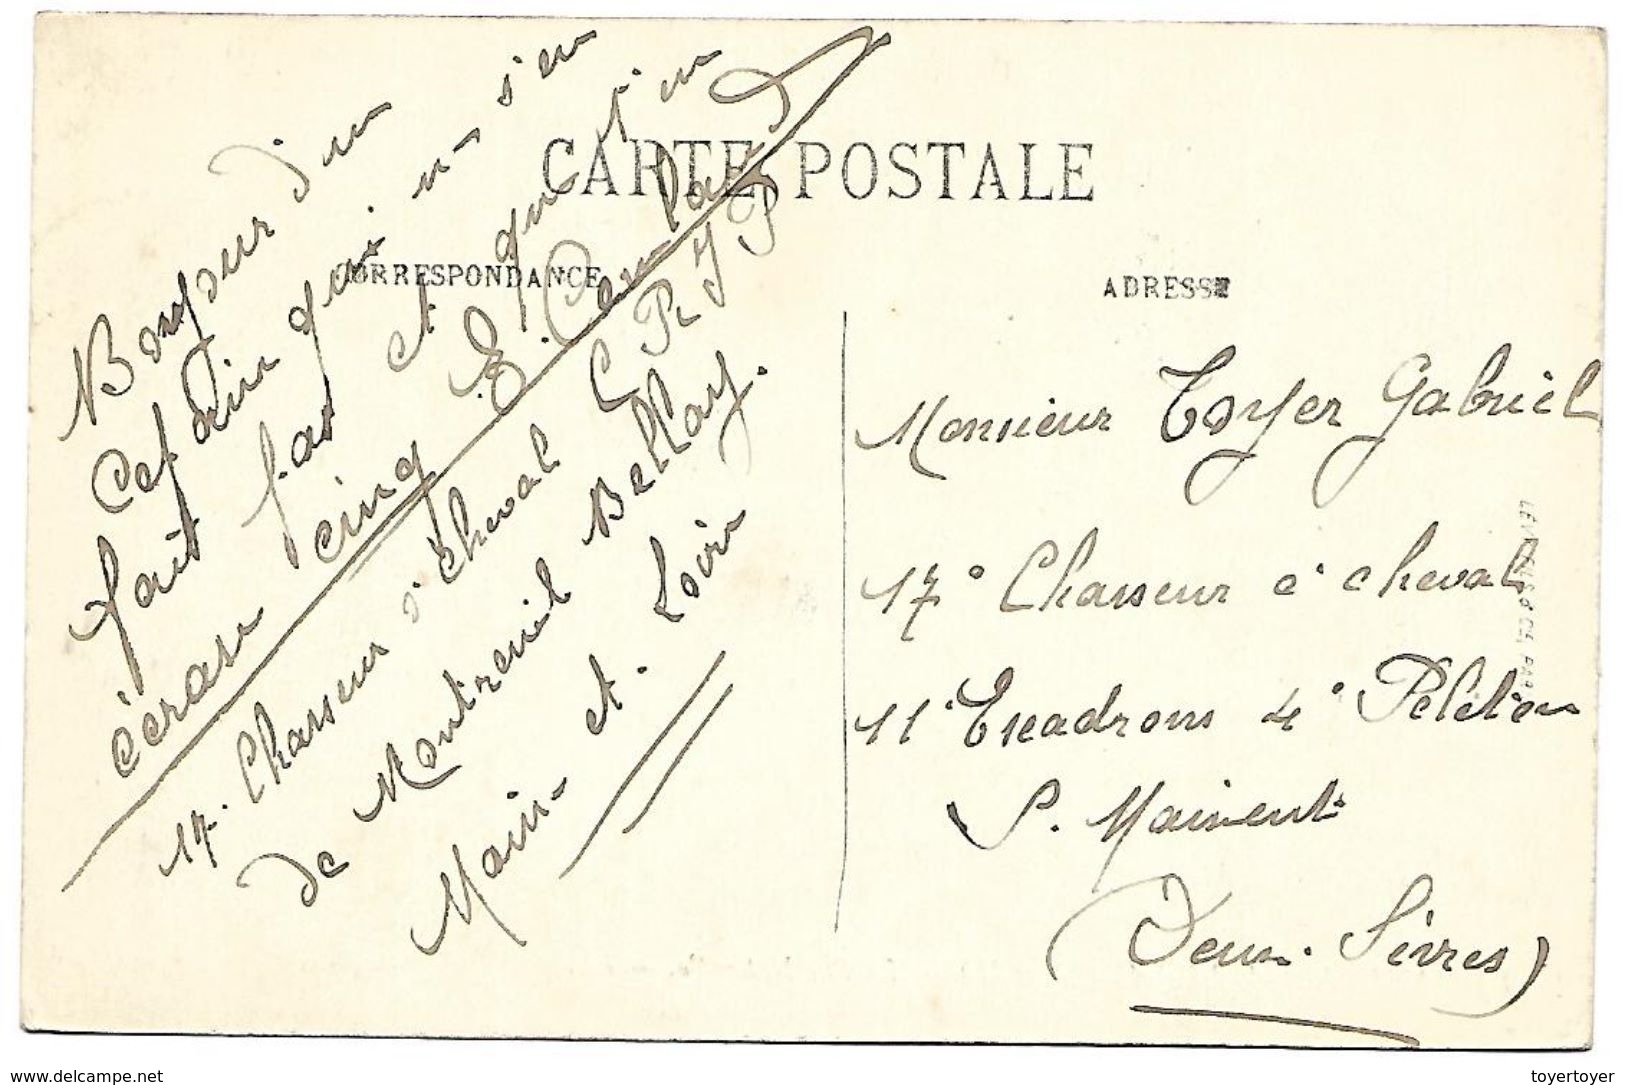 CARTE POSTALE
CORRESPONDANCE
ADRESSE
Bonjour d'un
Cefdin qui n- s'en
fait pas et qui t'in
écrase cinq
17. Chasseur à cheval
de Montreuil Bellay.
Main- et. Loire
Monsieur Toyer Gabriel
17° Chasseur à cheval
11° Escadrons 4° Peleton
S. Maixent
(Deux. Sèvres)
delcampe.net
toyertoyer